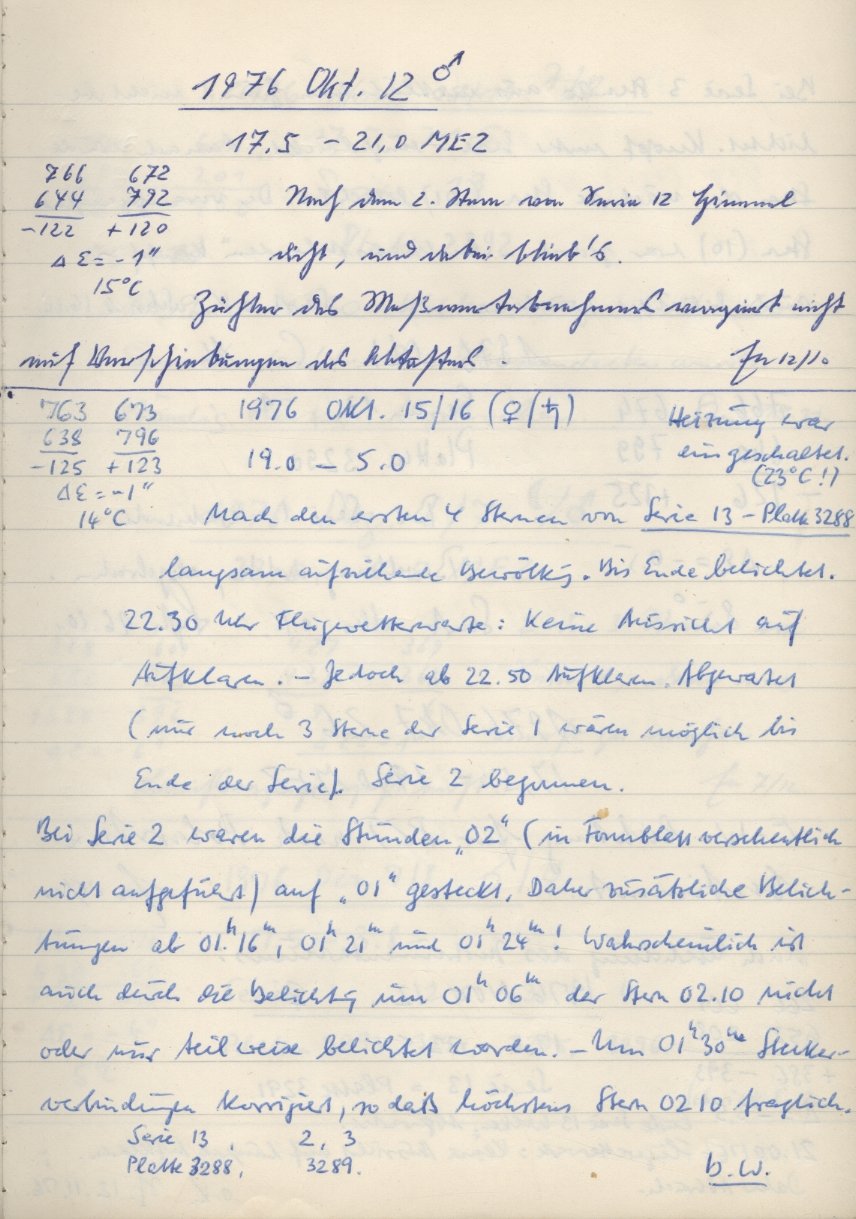 1976 Okt. 12 ♂
17.5 – 21,0 MEZ
766 672
644 792
-122 +120
Δ Σ = -1"
15°C
Nach dem 2. Stern von Serie 12 Himmel
dicht, und dabei blieb's.
Zähler des Meßwertabnehmers reagiert nicht
auf Verschiebungen des Abtasters.
12/10
763 673
638 796
-125 +123
Δ Σ = -1"
14°C
1976 OKT. 15/16 (♀/♄)
19.0 – 5.0
Heizung war
eingeschaltet.
(23°C!)
Nach den ersten 4 Sternen von Serie 13 – Platte 3288
langsam aufziehende Bewölkg. Bis Ende belichtet.
22.30 Uhr Flugwetterwarte: Keine Aussicht auf
Aufklaren. – Jedoch ab 22.50 Aufklaren. Abgewartet
(nur noch 3 Sterne der Serie 1 wären möglich bis
Ende der Serie). Serie 2 begonnen.
Bei Serie 2 waren die Stunden „02" (in Formblatt versehentlich
nicht aufgeführt) auf „01" gesteckt. Daher zusätzliche Belich-
tungen ab 01ʰ16ᵐ, 01ʰ21ᵐ und 01ʰ24ᵐ! Wahrscheinlich ist
auch durch die Belichtg um 01ʰ06ᵐ der Stern 02.10 nicht
oder nur teilweise belichtet worden. – Um 01ʰ30ᵐ Stecker-
verbindungen korrigiert, so daß höchstens Stern 0210 fraglich.
Serie 13, 2, 3
Platte 3288, 3289.
b.w.